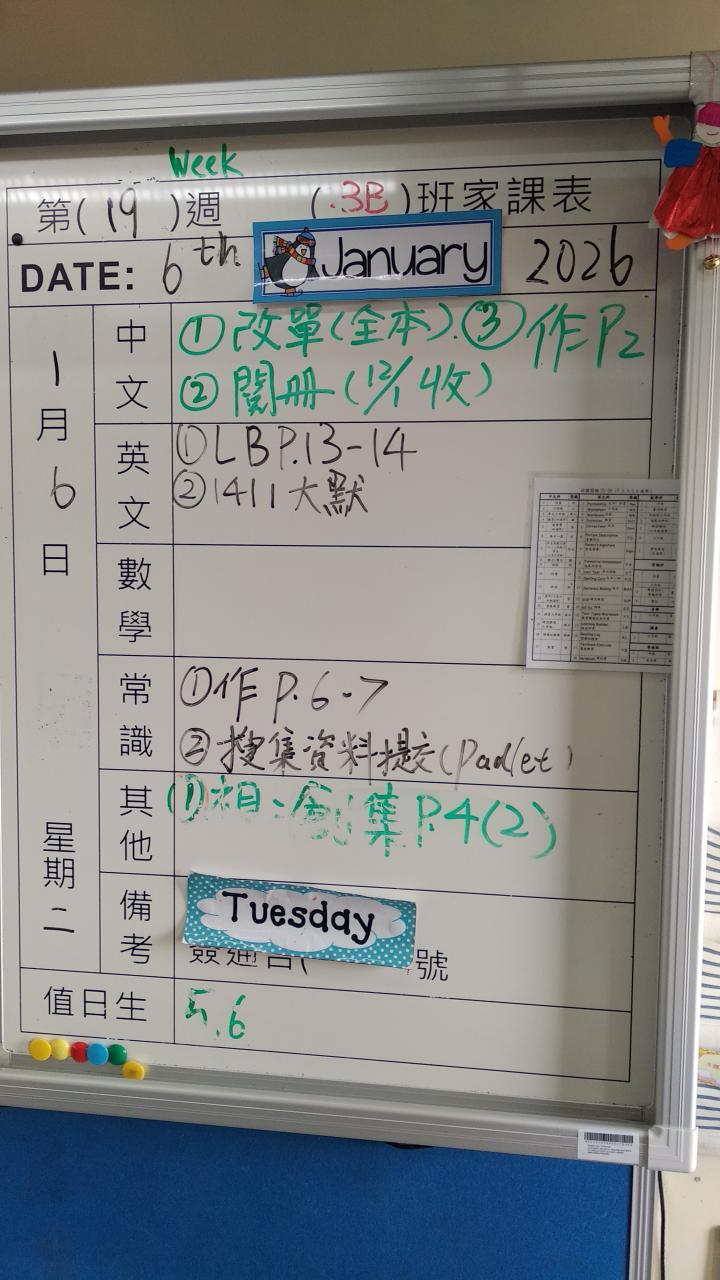 Week
第(19)週 (3B)班家課表
DATE: 6th January 2026
1月6日 星期二
中文 ①改單(全本). ③作P2
②閱冊(12/1收)
英文 ①LBP.13-14
②1411大默
數學
常識 ①作P.6-7
②搜集資料提交(Padlet)
其他 ①相.創集P.4(2)
備考 Tuesday
簽通告( 號
值日生 5.6